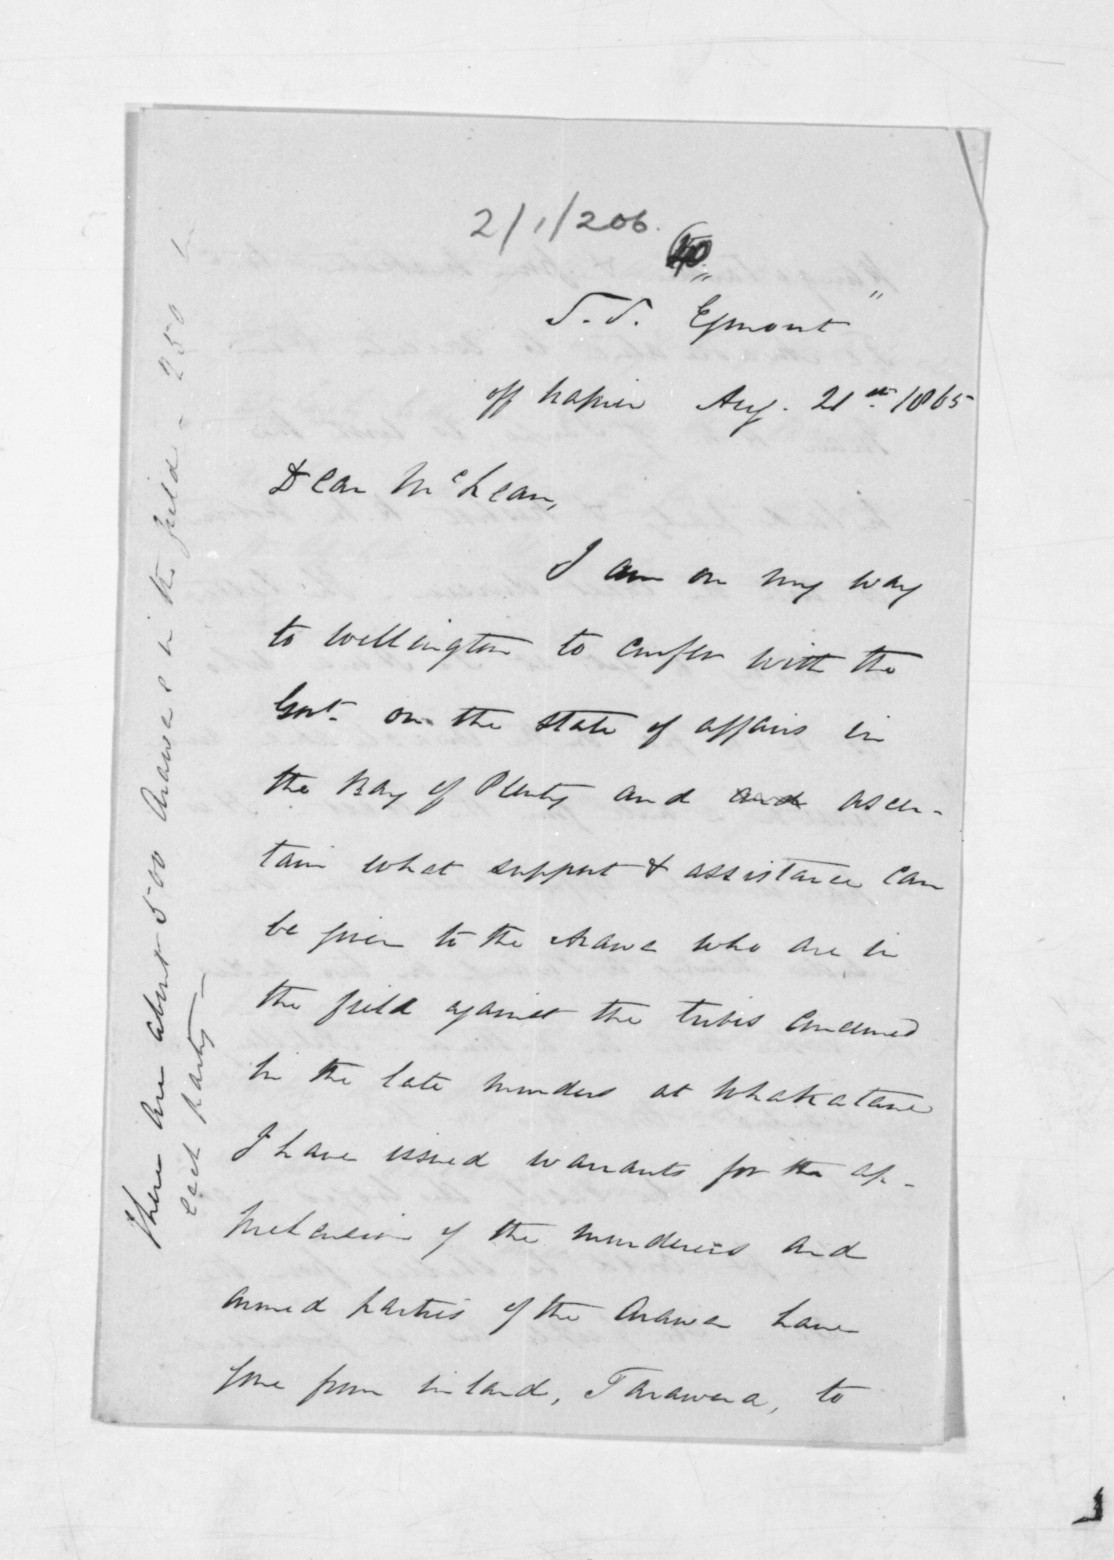 2/1/206.
40
S.S. "Egmont"
off Napier Aug. 21st. 1865
Dear McLean,
I am on my way
to Wellington to confer with the
Govt. on the state of affairs in
the Bay of Plenty and and ascer-
tain what support & assistance can
be given to the Arawa who are in
the field against the tribes concerned
in the late murders at Whakatane
I have issued warrants for the ap-
prehension of the murderers and
armed parties of the Arawa have
gone from inland, Tarawera, to
There are about 500 Arawas in the field - 250 in
each party -